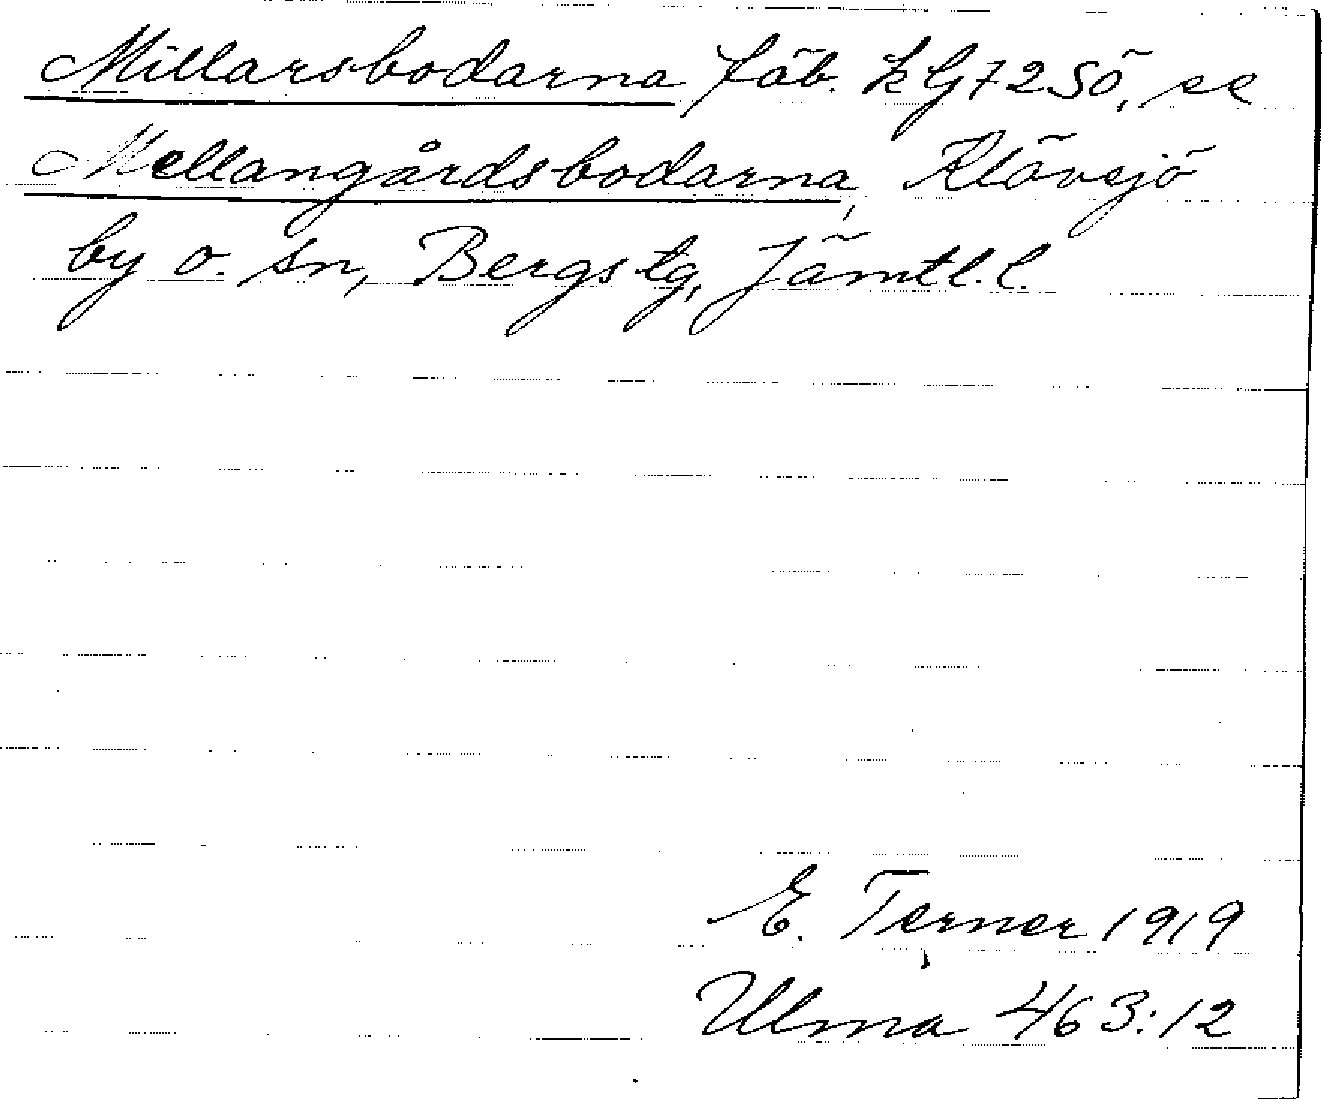 Millarsbodarna fäb. kG72SÖ, se
Mellangårdsbodarna, Klövsjö
by o. sn, Bergs tg, Jämtl. l.
E. Terner 1919
Ulma 463:12